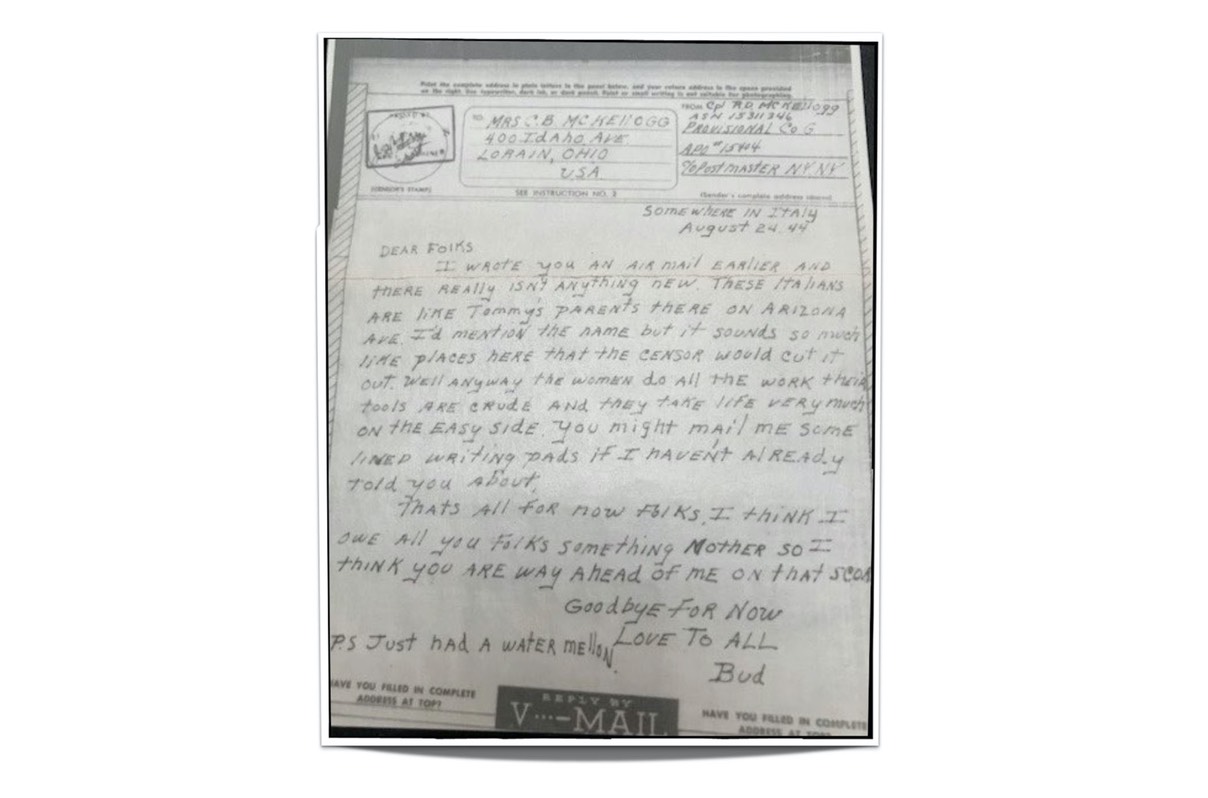 Print the complete address in plain letters in the panel below, and your return address in the space provided
on the right. Use typewriter, dark ink, or dark pencil. Faint or small writing is not suitable for photographing.
TO: MRS C.B. MCKELLOGG
400 IdAho AVE
LORAIN, OHIO
USA
FROM Cpl R.D. MCKELLOgg
ASN 15311346
PROVISIONAL CO G
APO #15414
% POSTMASTER N.Y. N.Y.
(CENSOR'S STAMP)
SEE INSTRUCTION NO. 2
(Sender's complete address above)
SOMEWHERE IN ITALY
August 24. 44
DEAR FOlKS
I WROTE you AN AIR mail EARLIER AND
tHERE REAlly ISN't ANythiNg NEW. THESE ITALIANS
ARE liKE Tommy's PARENTS tHERE ON ARIZONA
AVE. I'd mENtioN tHE NAmE but it SOUNdS SO much
liKE plACES HERE tHAt tHE CENSOR WOUld CUt it
OUt. WEll ANYWAY tHE WOmEN do All tHE WORK tHEIR
tOOlS ARE CRUdE ANd tHEY tAKE liFE VERY mUCH
ON tHE EASY SidE. YOU might mAil mE SOmE
liNED WRiting pAds iF I HAVEN't AlREAdy
tOld you AbOUt.
tHAtS All FOR NOW FOlKS. I tHiNK I
OWE All yOU FOlKS SOmEtHiNg MOtHER SO I
tHiNK YOU ARE WAY AHEAd OF mE ON tHAt SCOR
GOOdbyE FOR NOW
LOVE TO ALL
P.S JuSt HAd A WAtER mEllON.
Bud
HAVE YOU FILLED IN COMPLETE
ADDRESS AT TOP?
REPLY BY
V···—MAIL
HAVE YOU FILLED IN COMPLETE
ADDRESS AT TOP?